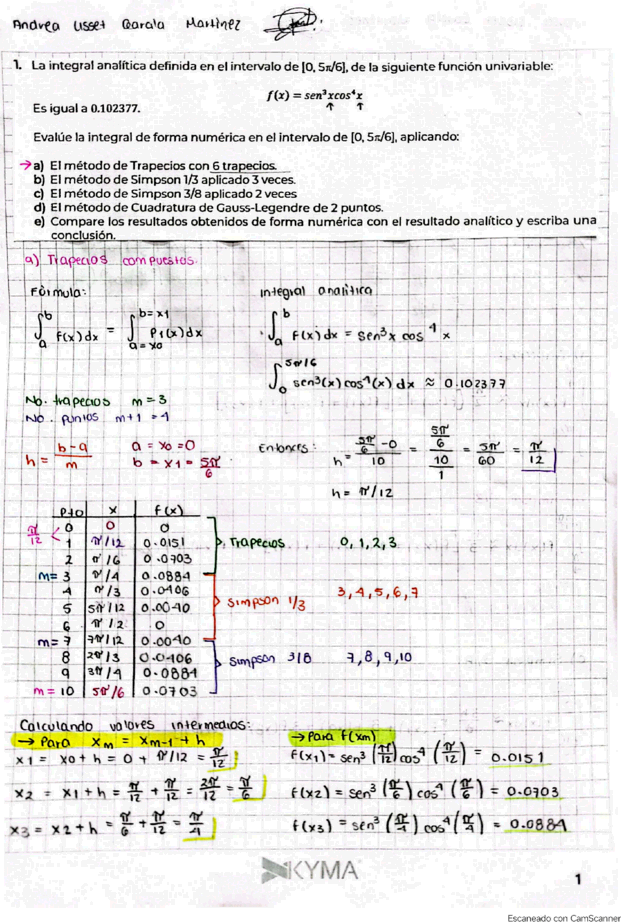 Andrea Lisset Barala Martinez
1. La integral analítica definida en el intervalo de [0, 5π/6], de la siguiente función univariable:
f(x) = sen³xcos⁴x
Es igual a 0.102377.
Evalúe la integral de forma numérica en el intervalo de [0, 5π/6], aplicando:
→ a) El método de Trapecios con 6 trapecios.
b) El método de Simpson 1/3 aplicado 3 veces.
c) El método de Simpson 3/8 aplicado 2 veces
d) El método de Cuadratura de Gauss-Legendre de 2 puntos.
e) Compare los resultados obtenidos de forma numérica con el resultado analítico y escriba una
conclusión.
a) Trapecios compuestos.
Fórmula:
∫ₐᵇ f(x) dx = ∫ₐ₌ₓ₀ᵇ⁼ˣ¹ P₁(x) dx
Integral analítica
∫ₐᵇ f(x) dx = sen³x cos⁴x
∫₀^5π/6 sen³(x) cos⁴(x) dx ≈ 0.102377
No. trapecios m = 3
No. puntos m+1 = 4
h = b-a/m
a = x0 = 0
b = x1 = 5π/6
Entonces: h = (5π/6 - 0)/10 = (5π/6)/(10/1) = 5π/60 = π/12
h = π/12
Pto x f(x)
π/12 < 0 0 0
1 π/12 0.0151
2 π/6 0.0703
m= 3 π/4 0.0884
4 π/3 0.0406
5 5π/12 0.0040
6 π/2 0
m= 7 7π/12 0.0040
8 2π/3 0.0406
9 3π/4 0.0884
m = 10 5π/6 0.0703
Trapecios 0, 1, 2, 3
Simpson 1/3 3, 4, 5, 6, 7
Simpson 3/8 7, 8, 9, 10
Calculando valores intermedios:
→ Para xm = xm-1 + h
x1 = x0 + h = 0 + π/12 = π/12
x2 = x1 + h = π/12 + π/12 = 2π/12 = π/6
x3 = x2 + h = π/6 + π/12 = π/4
→ Para f(xm)
f(x1) = sen³ (π/12) cos⁴ (π/12) = 0.0151
f(x2) = sen³ (π/6) cos⁴ (π/6) = 0.0703
f(x3) = sen³ (π/4) cos⁴ (π/4) = 0.0884
KYMA
1
Escaneado con CamScanner